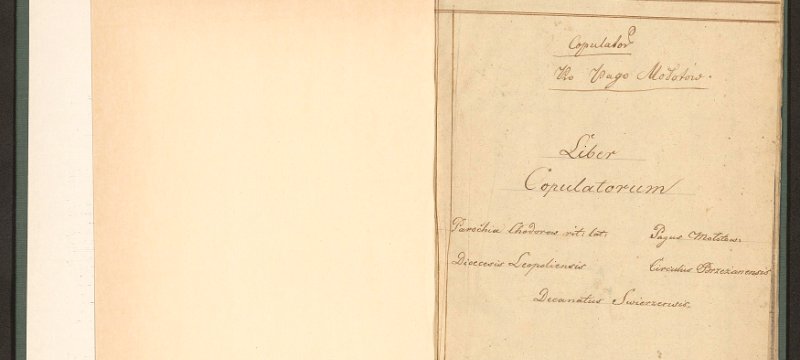 Copulator
Pro Pago Mołotów.
Liber
Copulatorum
Parochia Chodorow rit: lat: Pagus Mołotow:
Dioecesis Leopoliensis Circulus Brzezanensis
Decanatus Swierzensis.